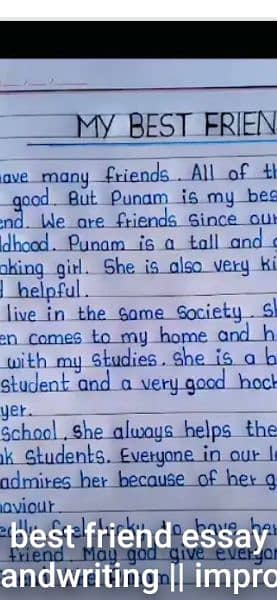 MY BEST FRIEN
ave many friends. All of th
good. But Punam is my bes
end. We are friends since ou
ldhood. Punam is a tall and
oking girl. She is also very ki
d helpful.
live in the same society. S
en comes to my home and h
with my studies. She is a b
student and a very good hoc
yer.
school, she always helps the
ak students. Everyone in our
admires her because of her g
aviour.
best friend essay
friend. May god give everyon
andwriting || impro